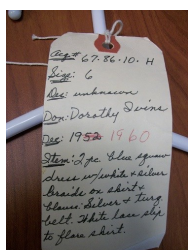 Acq# 67.86.10. H
Size: 6
Des: unknown
Don: Dorothy Ivins
Dec: 1952 1960
Item: 2 pc blue squaw
dress w/ white & silver
braids on skirt &
blouse. Silver & turq
belt. White lace slip
to flare skirt.